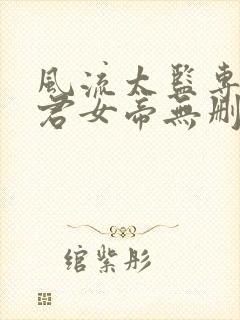 風流太監專
君女帝無刪
綰紫彤